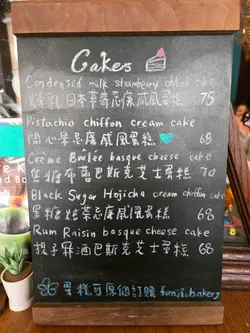 Cakes
Condensed milk strawberry chiffon cake
煉乳日本草莓忌廉戚風蛋糕 75
Pistachio chiffon cream cake
開心果忌廉戚風蛋糕 68
Crème Brûlée basque cheese cake
焦糖布蕾巴斯克芝士蛋糕 70
Black Sugar Hojicha cream chiffon cake
黑糖焙茶忌廉戚風蛋糕 68
Rum Raisin basque cheese cake
提子冧酒巴斯克芝士蛋糕 68
蛋糕可原個訂購